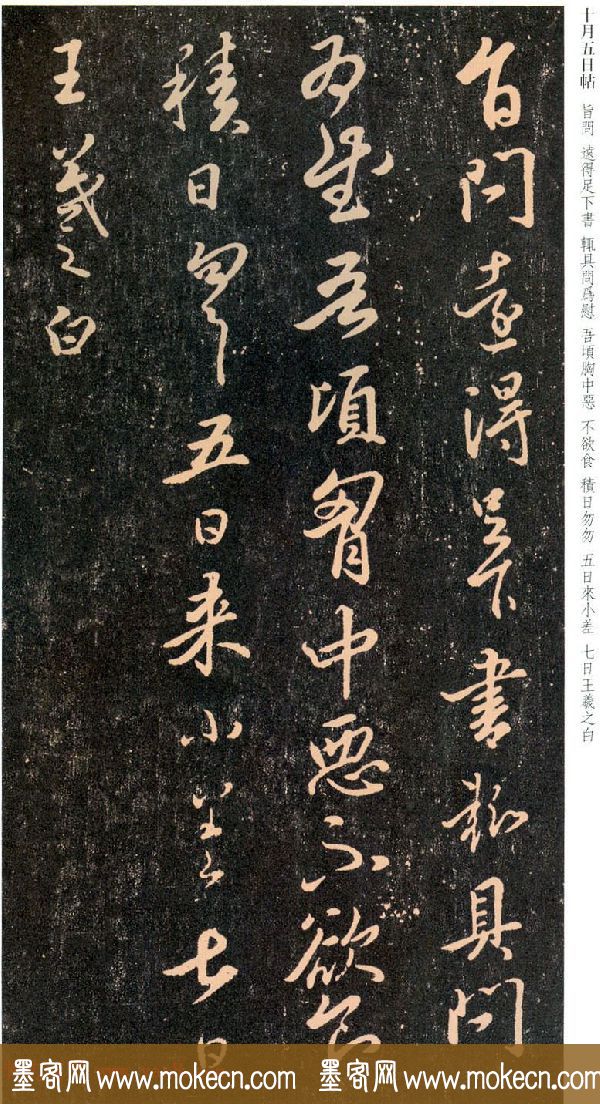 十月五日帖 旨問 遠得足下書 輒具問為慰 吾頃胸中惡 不欲食 積日勿勿 五日來小差 七日王羲之白
旨問遠得足下書輒具問
為慰吾頃胷中惡不欲食
積日勿勿五日来小差七日
王羲之白
墨客网 www.mokecn.com 墨客网 www.mokecn.com